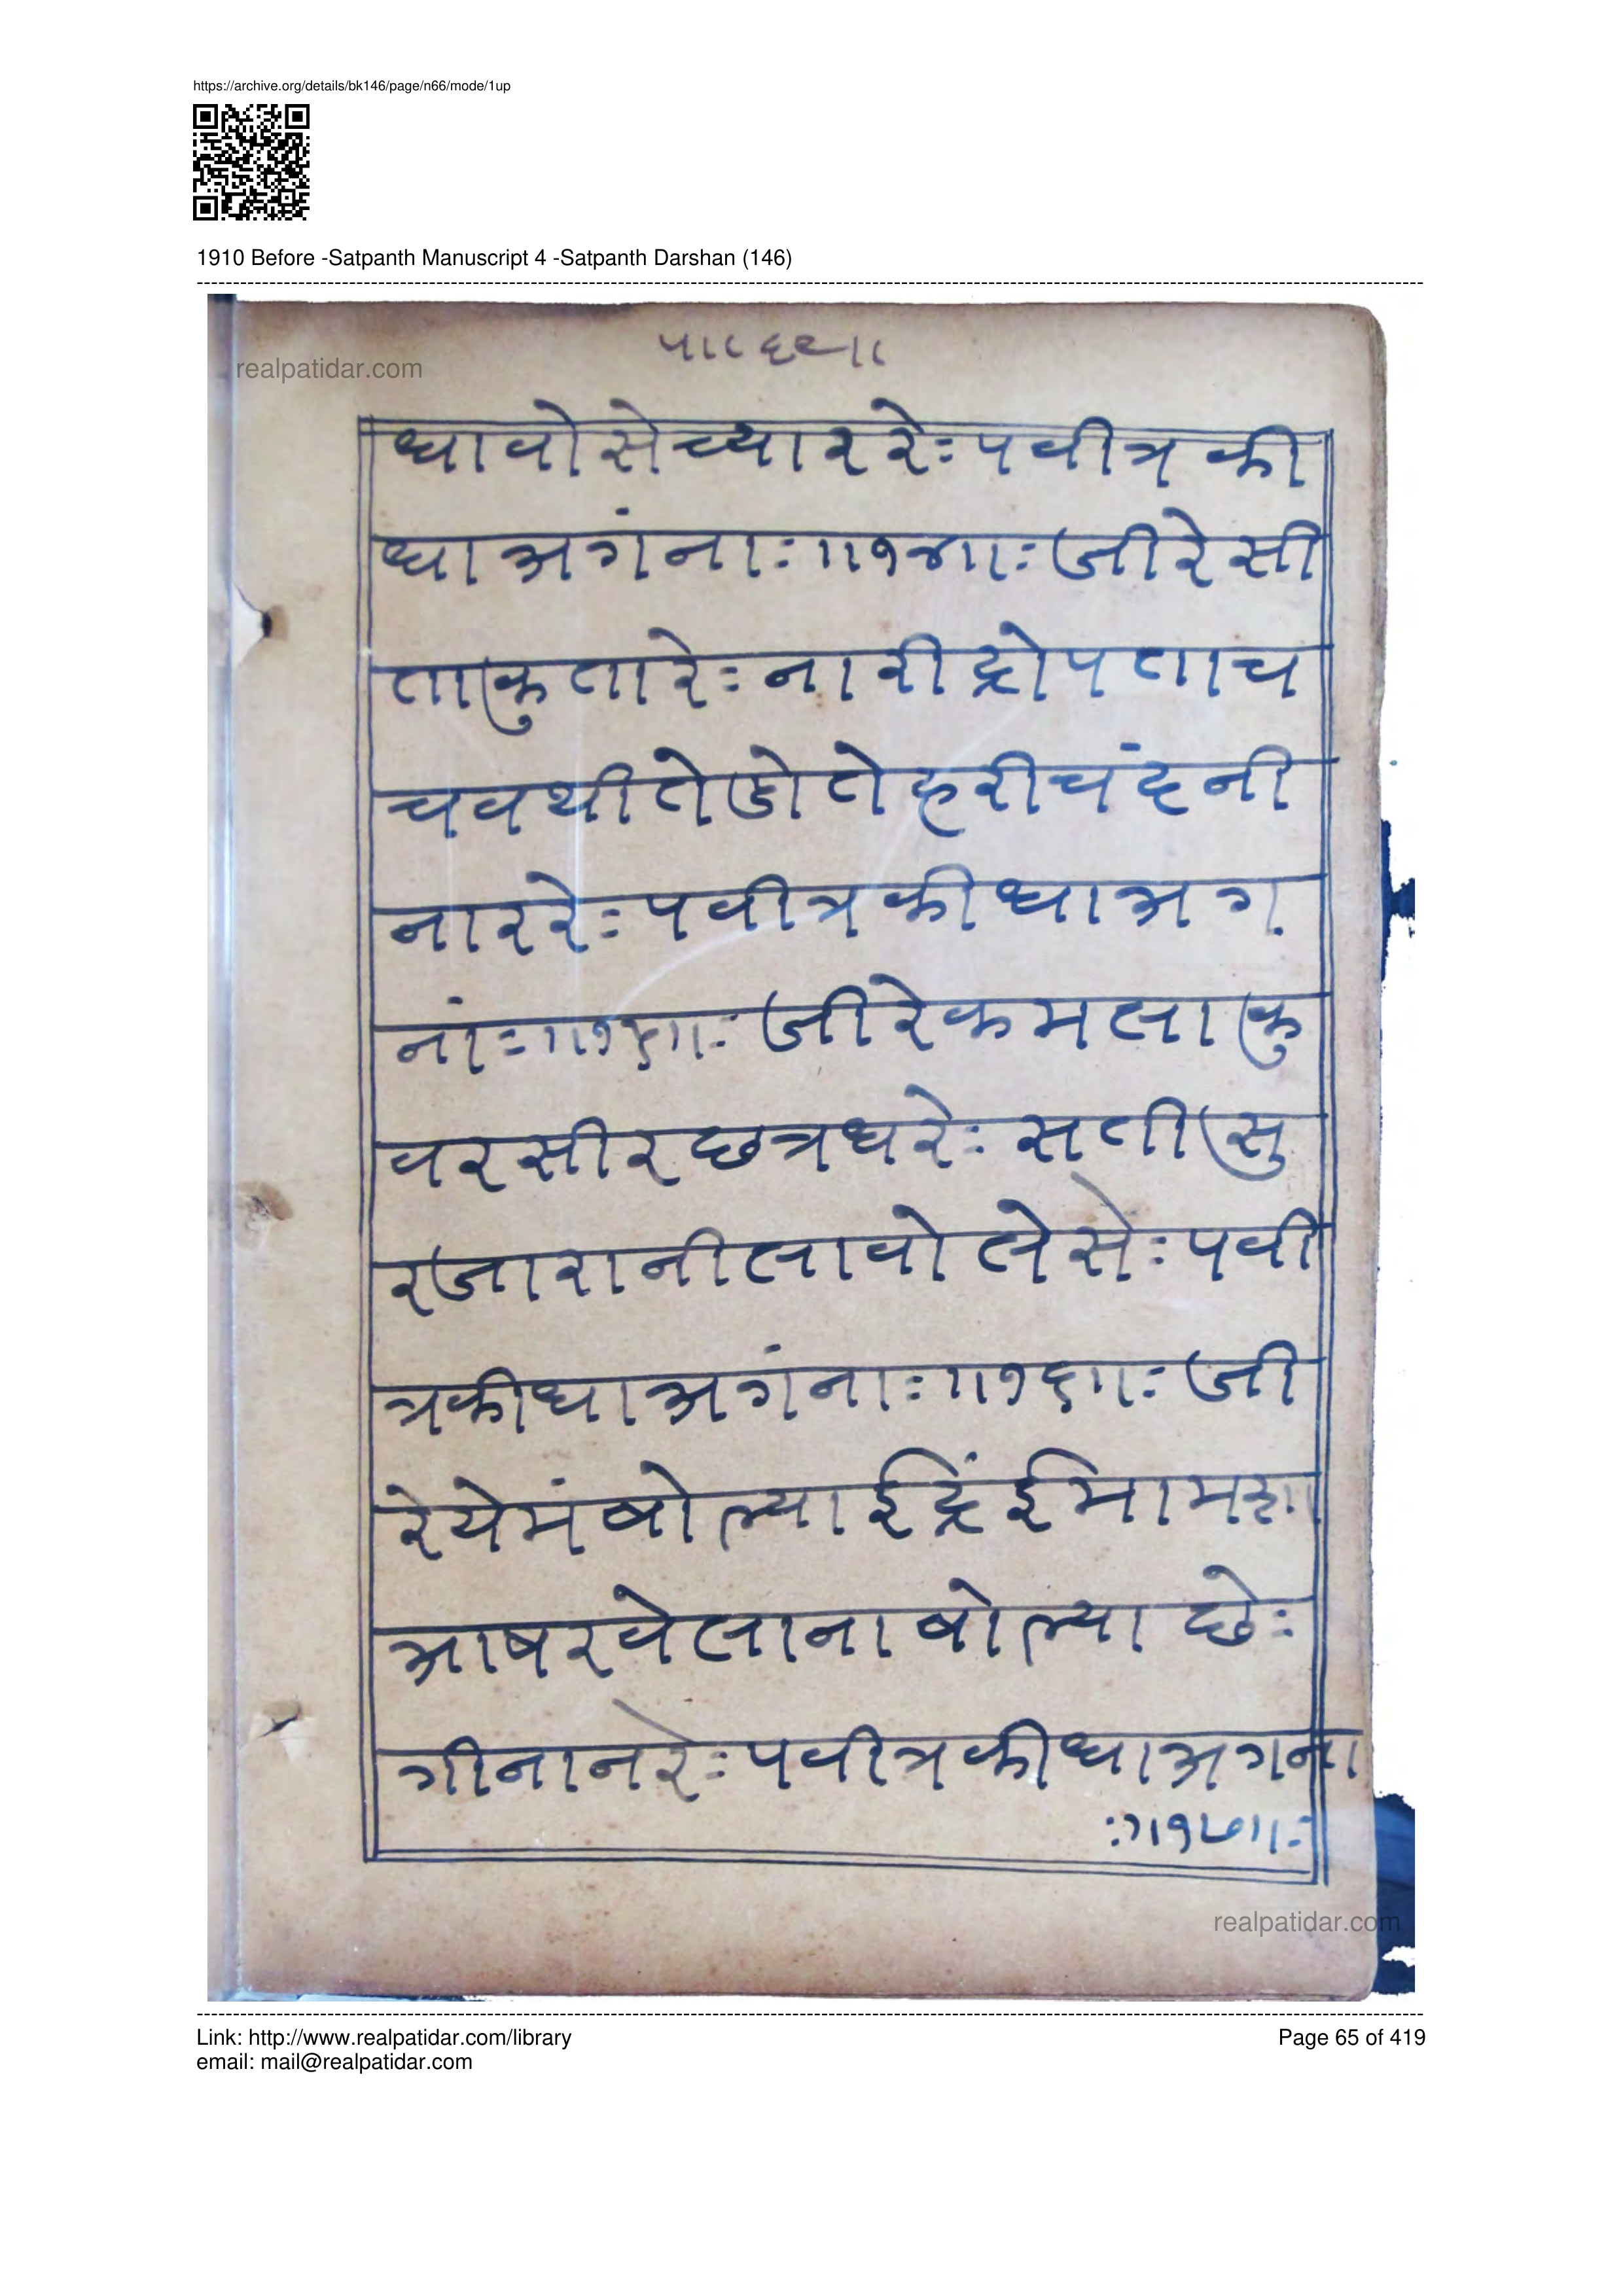 https://archive.org/details/bk146/page/n66/mode/1up
1910 Before -Satpanth Manuscript 4 -Satpanth Darshan (146)
realpatidar.com
धावोसेच्याररेः पवीत्र की
धा अगंनाः ॥१४॥ः जीरेसी
ताकुतारेः नारीद्रोपताच
चवथीतेडोतेहरीचंदनी
नाररेः पवीत्रकीधाअग
नांः ॥१५॥ः जीरेकमलाकु
वरसीरछत्रधरेः सतीसु
रजारानीलावोलेसेः पवी
त्रकीधाअगंनाः ॥१६॥ः जी
रेयेमंबोल्याईद्रिंईमाम
आषरवेलानाबोल्या छेः
गीनानरेः पवीत्रकीधाअगना
ः॥१७॥ः
realpatidar.com
Link: http://www.realpatidar.com/library
Page 65 of 419
email: mail@realpatidar.com